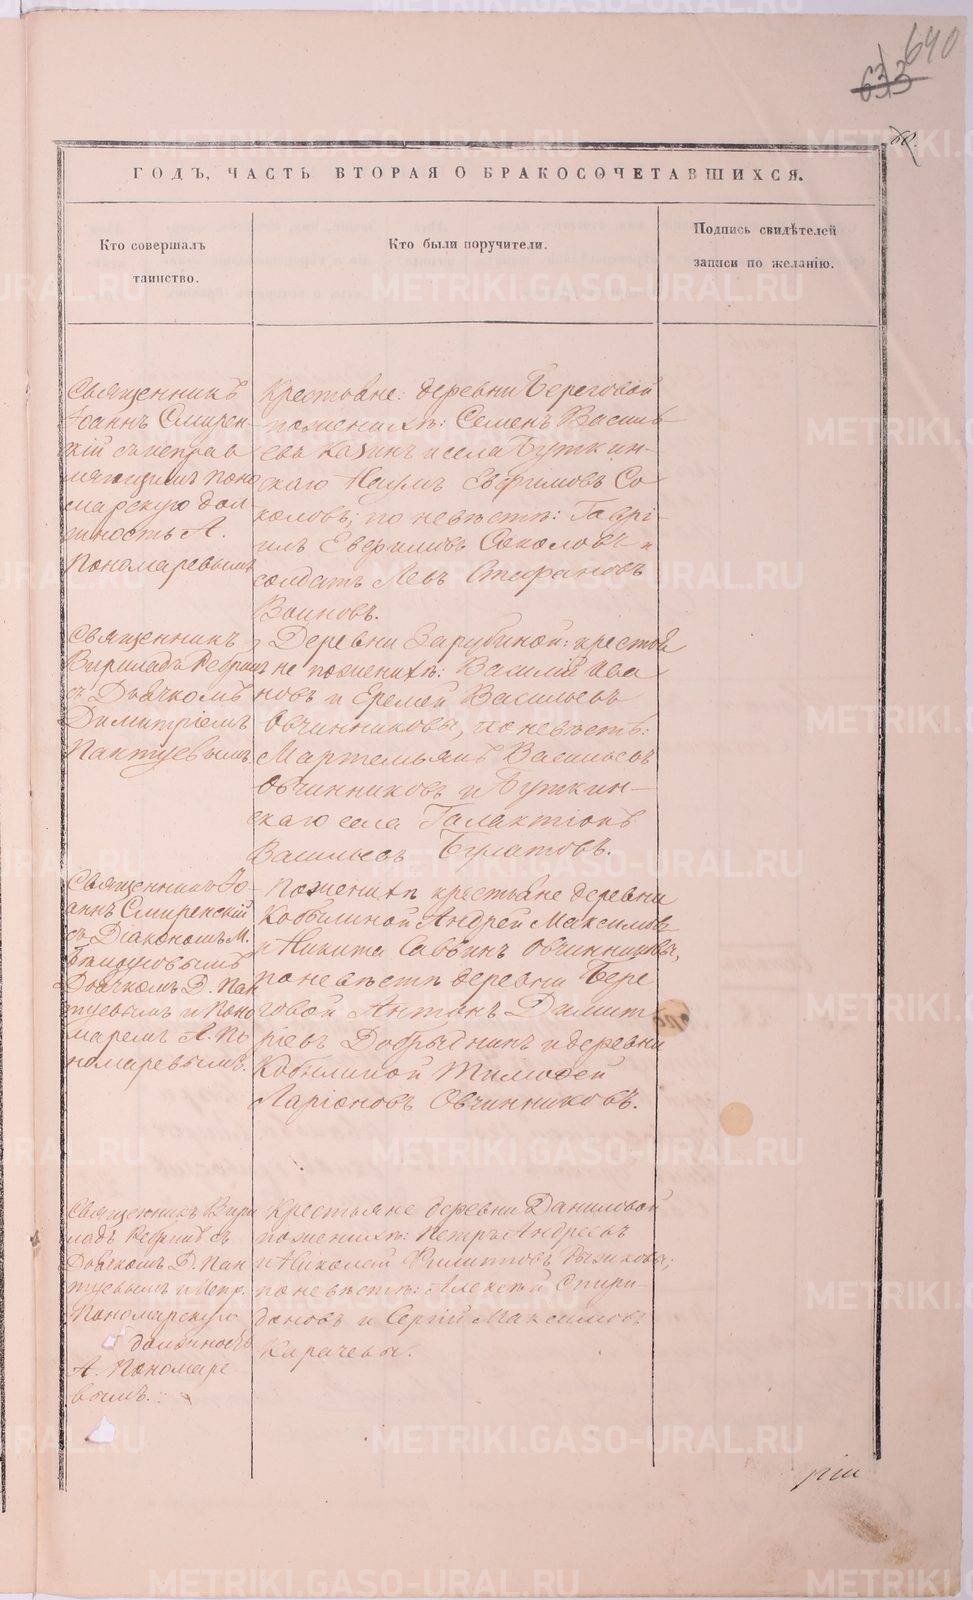 640
633
ГОДЪ, ЧАСТЬ ВТОРАЯ О БРАКОСОЧЕТАВШИХСЯ.
Кто совершалъ
таинство.
Кто были поручители.
Подпись свидѣтелей
записи по желанію.
Священникъ
Іоаннъ Смирен-
скій съ исправ
ляющимъ поно
марскую дол
жность А.
Пономаревымъ
Крестьяне: деревни Береговой
по женихѣ: Семенъ Василь
евъ Казинъ и села Буткин-
скаго Наумъ Евфимовъ Со
коловъ; по невѣстѣ: Гаврі-
илъ Евфимовъ Соколовъ и
солдатъ Левъ Стефановъ
Воиновъ.
Священникъ
съ Дьячкомъ
Димитріемъ
Пактуевымъ.
Деревни Зарубиной: крестья
не по женихѣ: Василій Ива
новъ и Еремей Васильевъ
Овчинниковы, по невѣстѣ:
Мартемьянъ Васильевъ
Овчинниковъ и Буткин-
скаго села Галактіонъ
Васильевъ Булатовъ.
Священникъ Іо-
аннъ Смиренскій
съ Діакономъ М.
Дьячкомъ Д. Пак
туевымъ и Поно
маремъ А. По
номаревымъ.
По женихѣ крестьяне деревни
Кобылиной Андрей Максимовъ
и Никита Савинъ Овчинниковы,
по невѣстѣ деревни Бере
говой Антонъ Димит
ріевъ Добрынинъ и деревни
Кобылиной Тимофей
Ларіоновъ Овчинниковъ.
Священникъ Вири
ладъ съ
Дьячкомъ Д. Пак
туевымъ и Испр.
Пономарскую
должность
А. Пономаре
вымъ.
Крестьяне деревни Даниловой
по женихѣ: Петръ Андреевъ
и Николай Филиповъ
по невѣстѣ: Алексѣй Спири-
доновъ и Сергій Максимовъ
Карачевы.
METRIKI.GASO-URAL.RU